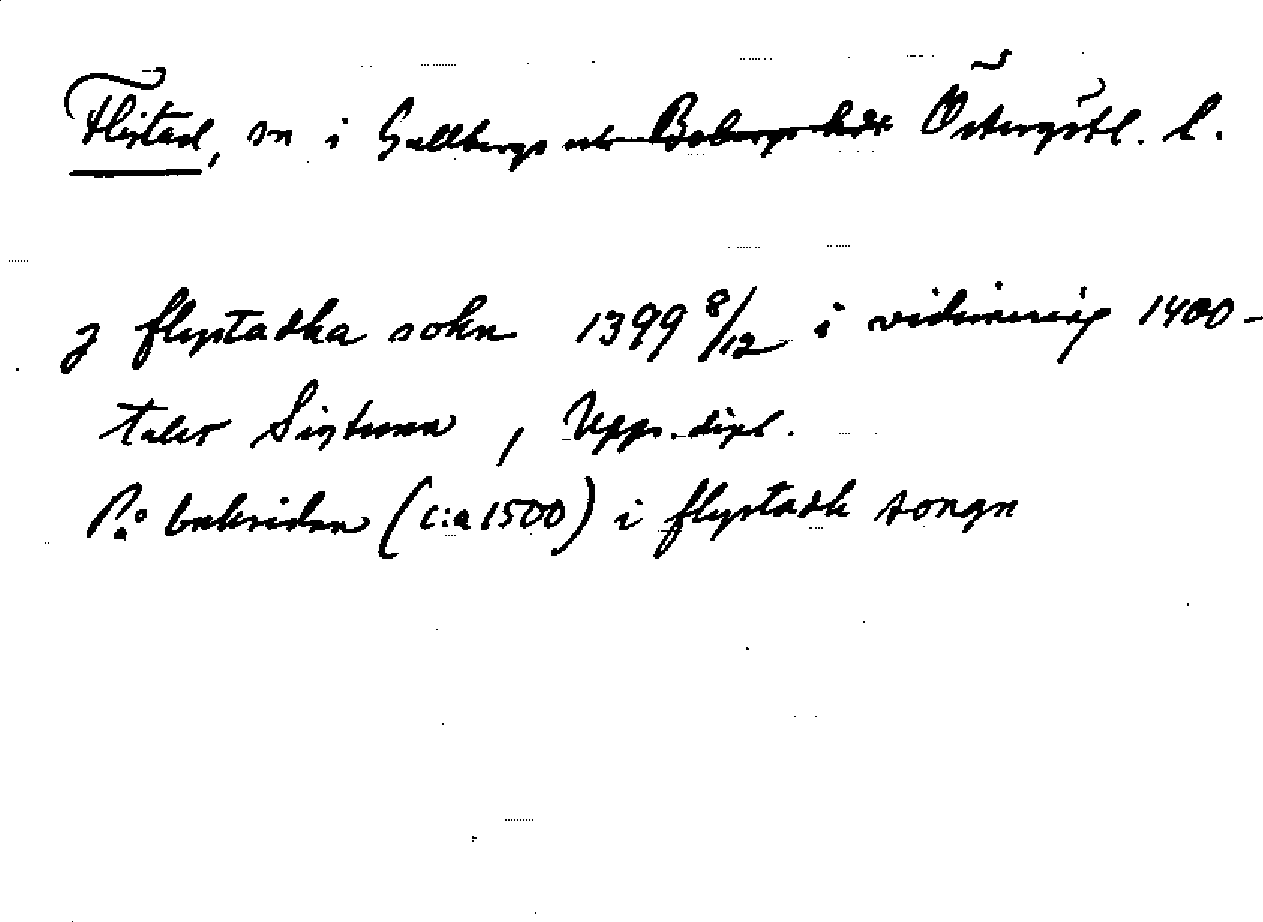 Flistad, sn i Gullbergs och Bobergs hdr Östergötl. l.
j flystadha sokn 1399 8/12 i vidimering 1400-
talet Sigtuna, Upps. dipl.
På baksidan (c:a 1500) i flystadh songn